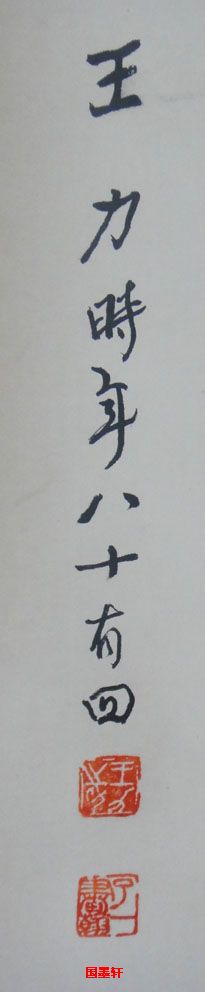 王力時年八十有四
国墨轩